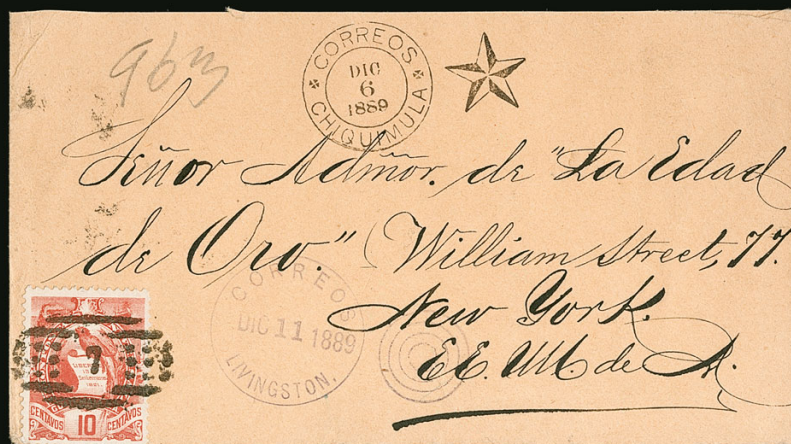 963
CORREOS
DIC
6
1889
CHIQUIMULA
Señor Admor. de "La Edad
de Oro." William Street, 77.
New York.
EE. UU. de A.
CORREOS
DIC 11 1889
LIVINGSTON.
7
LIBERTAD
CENTAVOS 10 CENTAVOS